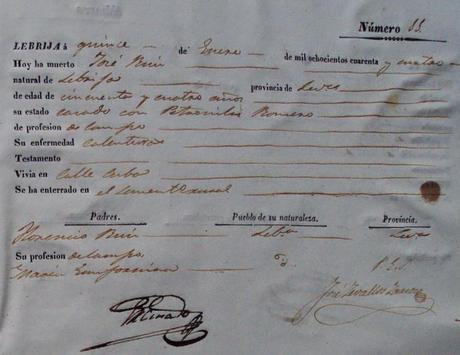 Número 11.
LEBRIJA á quince de Enero
de mil ochocientos cuarenta y cuatro
Hoy ha muerto José Ruiz
natural de Lebrija provincia de Sevª
de edad de cincuenta y cuatro años
su estado casado con Petronila Romero
de profesion del campo
Su enfermedad Calentura
Testamento
Vivia en Calle
Se ha enterrado en el
Padres. Pueblo de su naturaleza. Provincia.
Florencio Ruiz Lebª Sevª
Su profesion del campo
Maria
José Zevallos